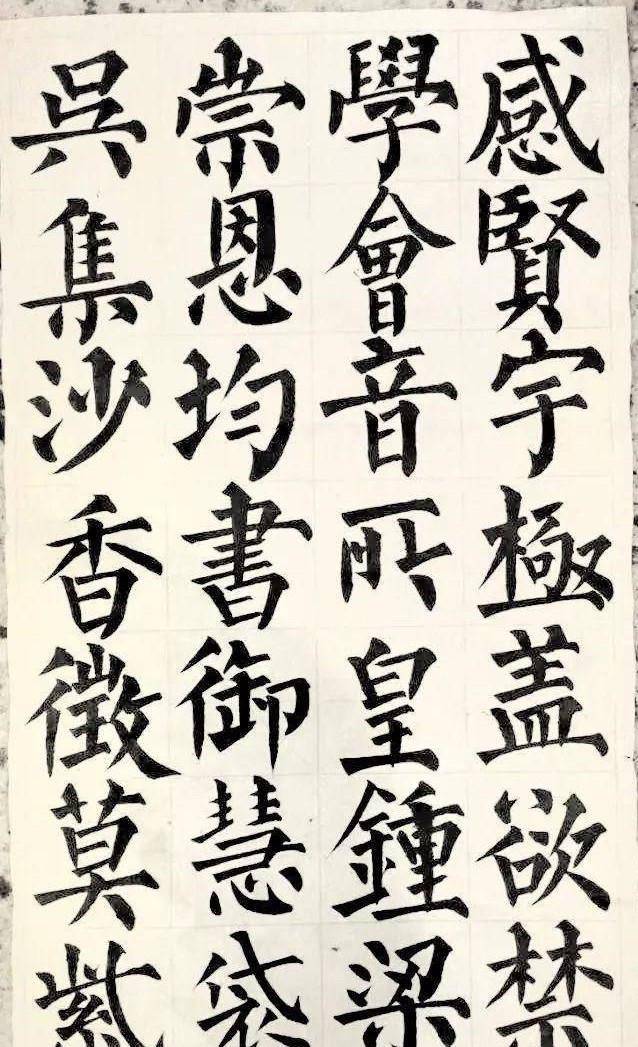 感賢宇極盖欲禁
學會音所皇鍾梁
崇恩均書御慧袋
吳集沙香徵莫紫